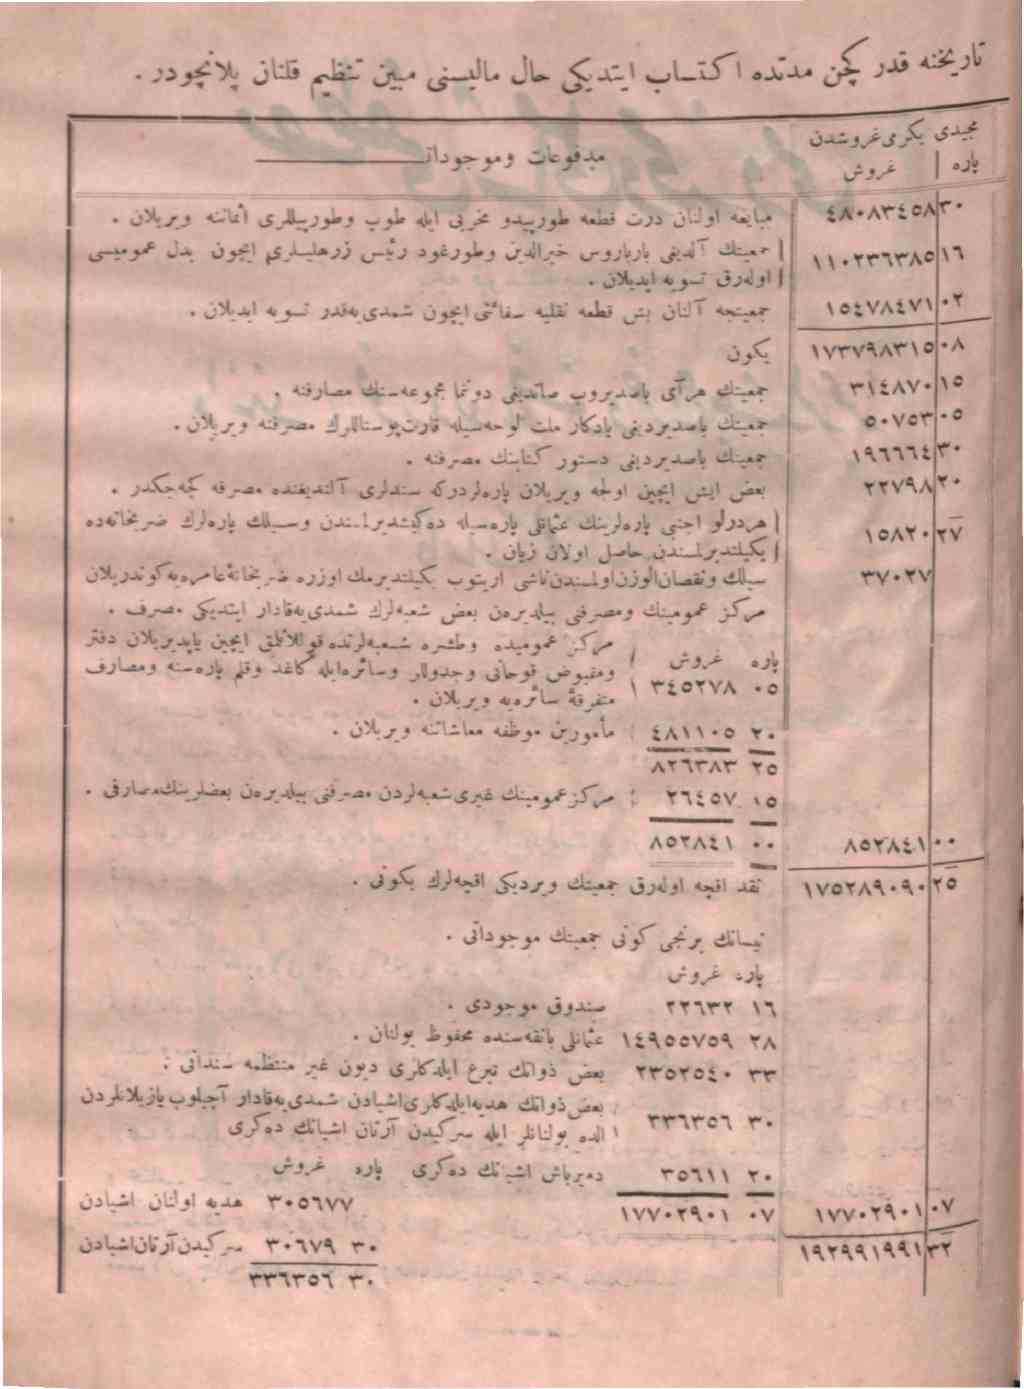 تاریخنه قدر کچن مدتده اکتساب ایتدیکی حال مالیسنی مبین تنظیم قلنان پلانچودر .
مجیدی یکرمی‌غروشدن
پاره غروش
مدفوعات وموجوداتـ
٤٨٠٨٣٤٥٨ ٣٠ مبایعه اولنان درت قطعه طورپیدو مخربی ایله طوپ وطورپیللری اثماننه ویریلان .
١١٠٢٣٦٣٨٥ ١٦ جمعیتك آلدیغی بارباروس خیرالدین وطورغود رئیس زرهلیلری ایچون بدل عمومیسی
اوله‌رق تسویه ایدیلان .
١٥٤٧٨٤٧١ ٠٢ جمعیتجه آلنان بش قطعه نقلیه سفائنی ایچون شمدی‌یه‌قدر تسویه ایدیلان .
١٧٣٧٩٨٣١٥ ٠٨ یکون
٣١٤٨٧٠ ١٥ جمعیتك هرآی باصدیروب صاتدیغی دوننما مجموعه‌سنك مصارفنه .
٥٠٧٥٣ ٠٥ جمعیتك باصدیردیغی یادکار ملت لوحه‌سیله قارت‌پوستاللرك مصرفنه ویریلان .
١٩٦٦٦٤ ٣٠ جمعیتك باصدیردیغی دستور کتابنك مصرفنه .
٢٢٧٩٨ ٢٠ بعض ایش ایچین اولجه ویریلان پاره‌لردرکه سندلری آلندیغنده مصرفه کچه‌جکدر .
١٥٨٢٠ ٢٧ هردرلو اجنبی پاره‌لرینك عثمانلی پاره‌سیله ده‌کیشدیرلمسندن وسیلك پاره‌لرك ضربخانه‌ده
یکیلتدیرلمسندن حاصل اولان زیان .
٣٧٠ ٢٧ سیلك ونقصان‌الوزن‌اولمسندن‌ناشی اریتوب یکیلتدیرمك اوزره ضربخانهٔ‌عامره‌یه‌کوندریلان
مرکز عمومینك ومصرفنی بیلدیره‌ن بعض شعبه‌لرك شمدی‌یه‌قادار ایتدیکی مصرف .
پاره غروش
٠٥ ٣٤٥٢٧٨ مرکز عمومیده وطشره شعبه‌لرنده‌قوللانلمق ایچین یاپدیریلان دفتر
ومقبوض قوچانی وجدوللر وسائره‌ایله کاغد وقلم پاره‌سنه ومصارف
متفرقهٔ سائره‌یه ویریلان .
٢٠ ٤٨١١٠٥ مأمورین موظفه معاشاتنه ویریلان .
٢٥ ٨٢٦٣٨٣
١٥ ٢٦٤٥٧ مرکزعمومینك غیری‌شعبه‌لردن مصرفنی بیلدیره‌ن بعضلرینك‌مصارفی .
٨٥٢٨٤١ ٠٠ ٠٠ ٨٥٢٨٤١
١٧٥٢٨٩٠٩٠ ٢٥ نقد اقچه اوله‌رق جمعیتك ویردیکی اقچه‌لرك یکونی .
نیسانك برنجی کونی جمعیتك موجوداتی .
پاره غروش
١٦ ٢٢٦٣٢ صندوق موجودی .
٢٨ ١٤٩٥٥٧٥٩ عثمانلی بانقه‌سنده محفوظ بولنان .
٣٣ ٢٣٥٢٥٤٠ بعض ذواتك تبرع ایله‌کلری دیون غیر منتظمه سنداتی .
٣٠ ٣٣٦٣٥٦ بعض‌ذواتك هدیه‌ایله‌کلری‌اشیادن شمدی‌یه‌قادار آچیلوب‌یازیلانلردن
الده بولنانلر ایله سرکیدن آرتان اشیانك ده‌کری
٢٠ ٣٥٦١١ ده‌میرباش اشیانك ده‌کری پاره غروش
١٧٧٠٢٩٠١ ٠٧ ٠٧ ١٧٧٠٢٩٠١ ٣٠٥٦٧٧ هدیه اولنان اشیادن
١٩٢٩٩١٩٩١ ٣٢ ٣٠ ٣٠٦٧٩ سرکیدن‌آرتان‌اشیادن
٣٠ ٣٣٦٣٥٦